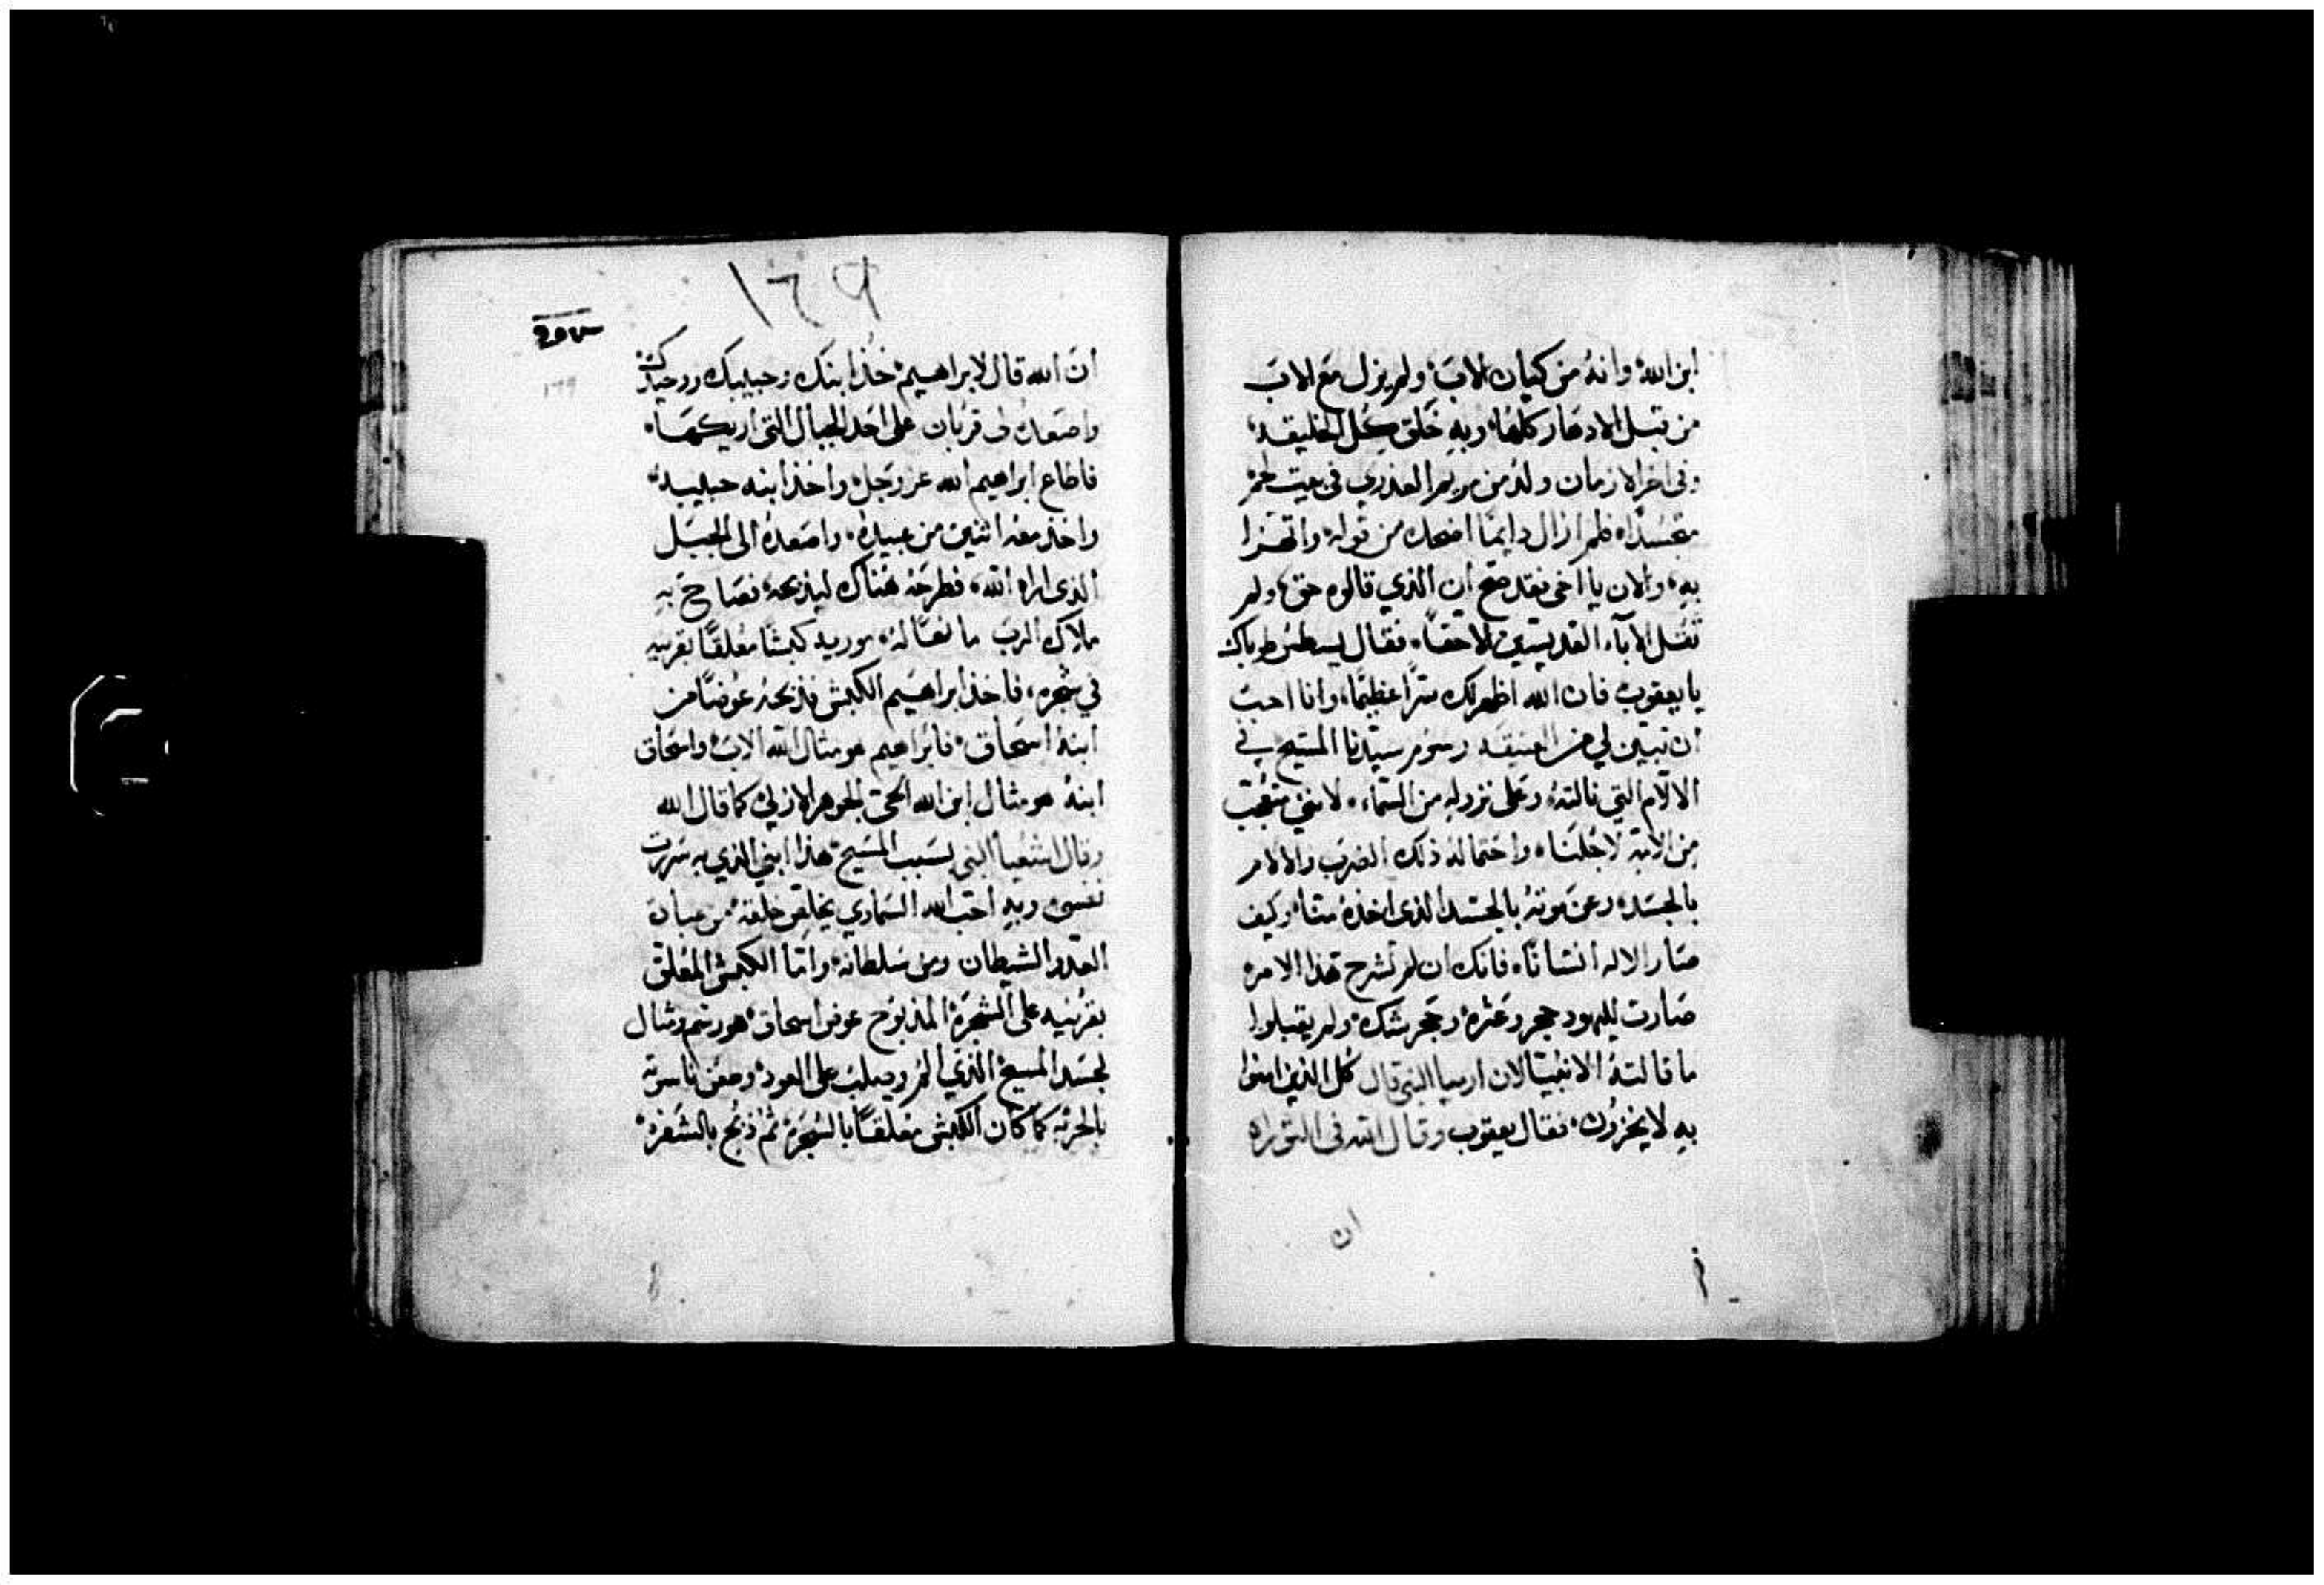 ابن الله وانهُ من كيان الاب ولم يزل مع الاب
من قبل الادهار كلها وبه خلق كل الخليقه
وفى اخر الازمان ولد من مريم العذري فى بيت لحم
متجسدًا فلم ازال دايمًا اضحك من قوله واتهزا
به والان يا اخى فقد صح ان الذي قالوه حق ولم
تقل الاباء القديسين الا حقا فقال يسطس طوباك
يا يعقوب فان الله اظهر لك سرًا عظيمًا وانا احب
ان تبين لي من العتيقه رسوم سيدنا المسيح فى
الالام التي نالته وعلى نزوله من السماء لانني متعجب
من الابن لاجلنا واحتماله ذلك الضرب والالام
بالجسد وعن موته بالجسد الذى اخذهُ منا وكيف
صار الاله انسانًا فانك ان لم تشرح هذا الامر
صارت لليهود حجر وعثره وحجر شك ولم يقبلوا
ما قالتهُ الانبيا لان ارميا النبي قال كل الذين امنوا
به لا يخزون فقال يعقوب وقال الله فى التوراه
ان
١٣٩
ان الله قال لابراهيم خذ ابنك وحبيبك ووحيدك
واصعدهُ لى قربان على احد الجبال التى اريكها
فاطاع ابراهيم الله عز وجل واخذ ابنه حبيبه
واخذ معه اثنين من عبيده واصعدهُ الى الجبل
الذى اراه الله فطرحه هناك ليذبحه فصاح به
ملاك الرب كبشًا معلقًا بقرنيه
في شجره فاخذ ابراهيم الكبش فذبحه عوضًا من
ابنهُ اسحاق فابراهيم هو مثال الله الاب واسحاق
ابنهُ هو مثال ابن الله الحى الجوهر الازلى كما قال الله
وقال اشعيا النبى بسبب المسيح هذا ابني الذي به سرت
نفسى وبه احب الله السماوي يخلص خلقه من عباده
العدو الشيطان ومن سلطانه واما الكبش المعلق
بقرنيه على الشجره المذبوح عوض اسحاق هو رسم ومثال
لجسد المسيح الذي المر وصلب على العود وطعن ناسوته
بالحربه كما كان الكبش معلقًا بالشجره ثم ذبح بالشفره